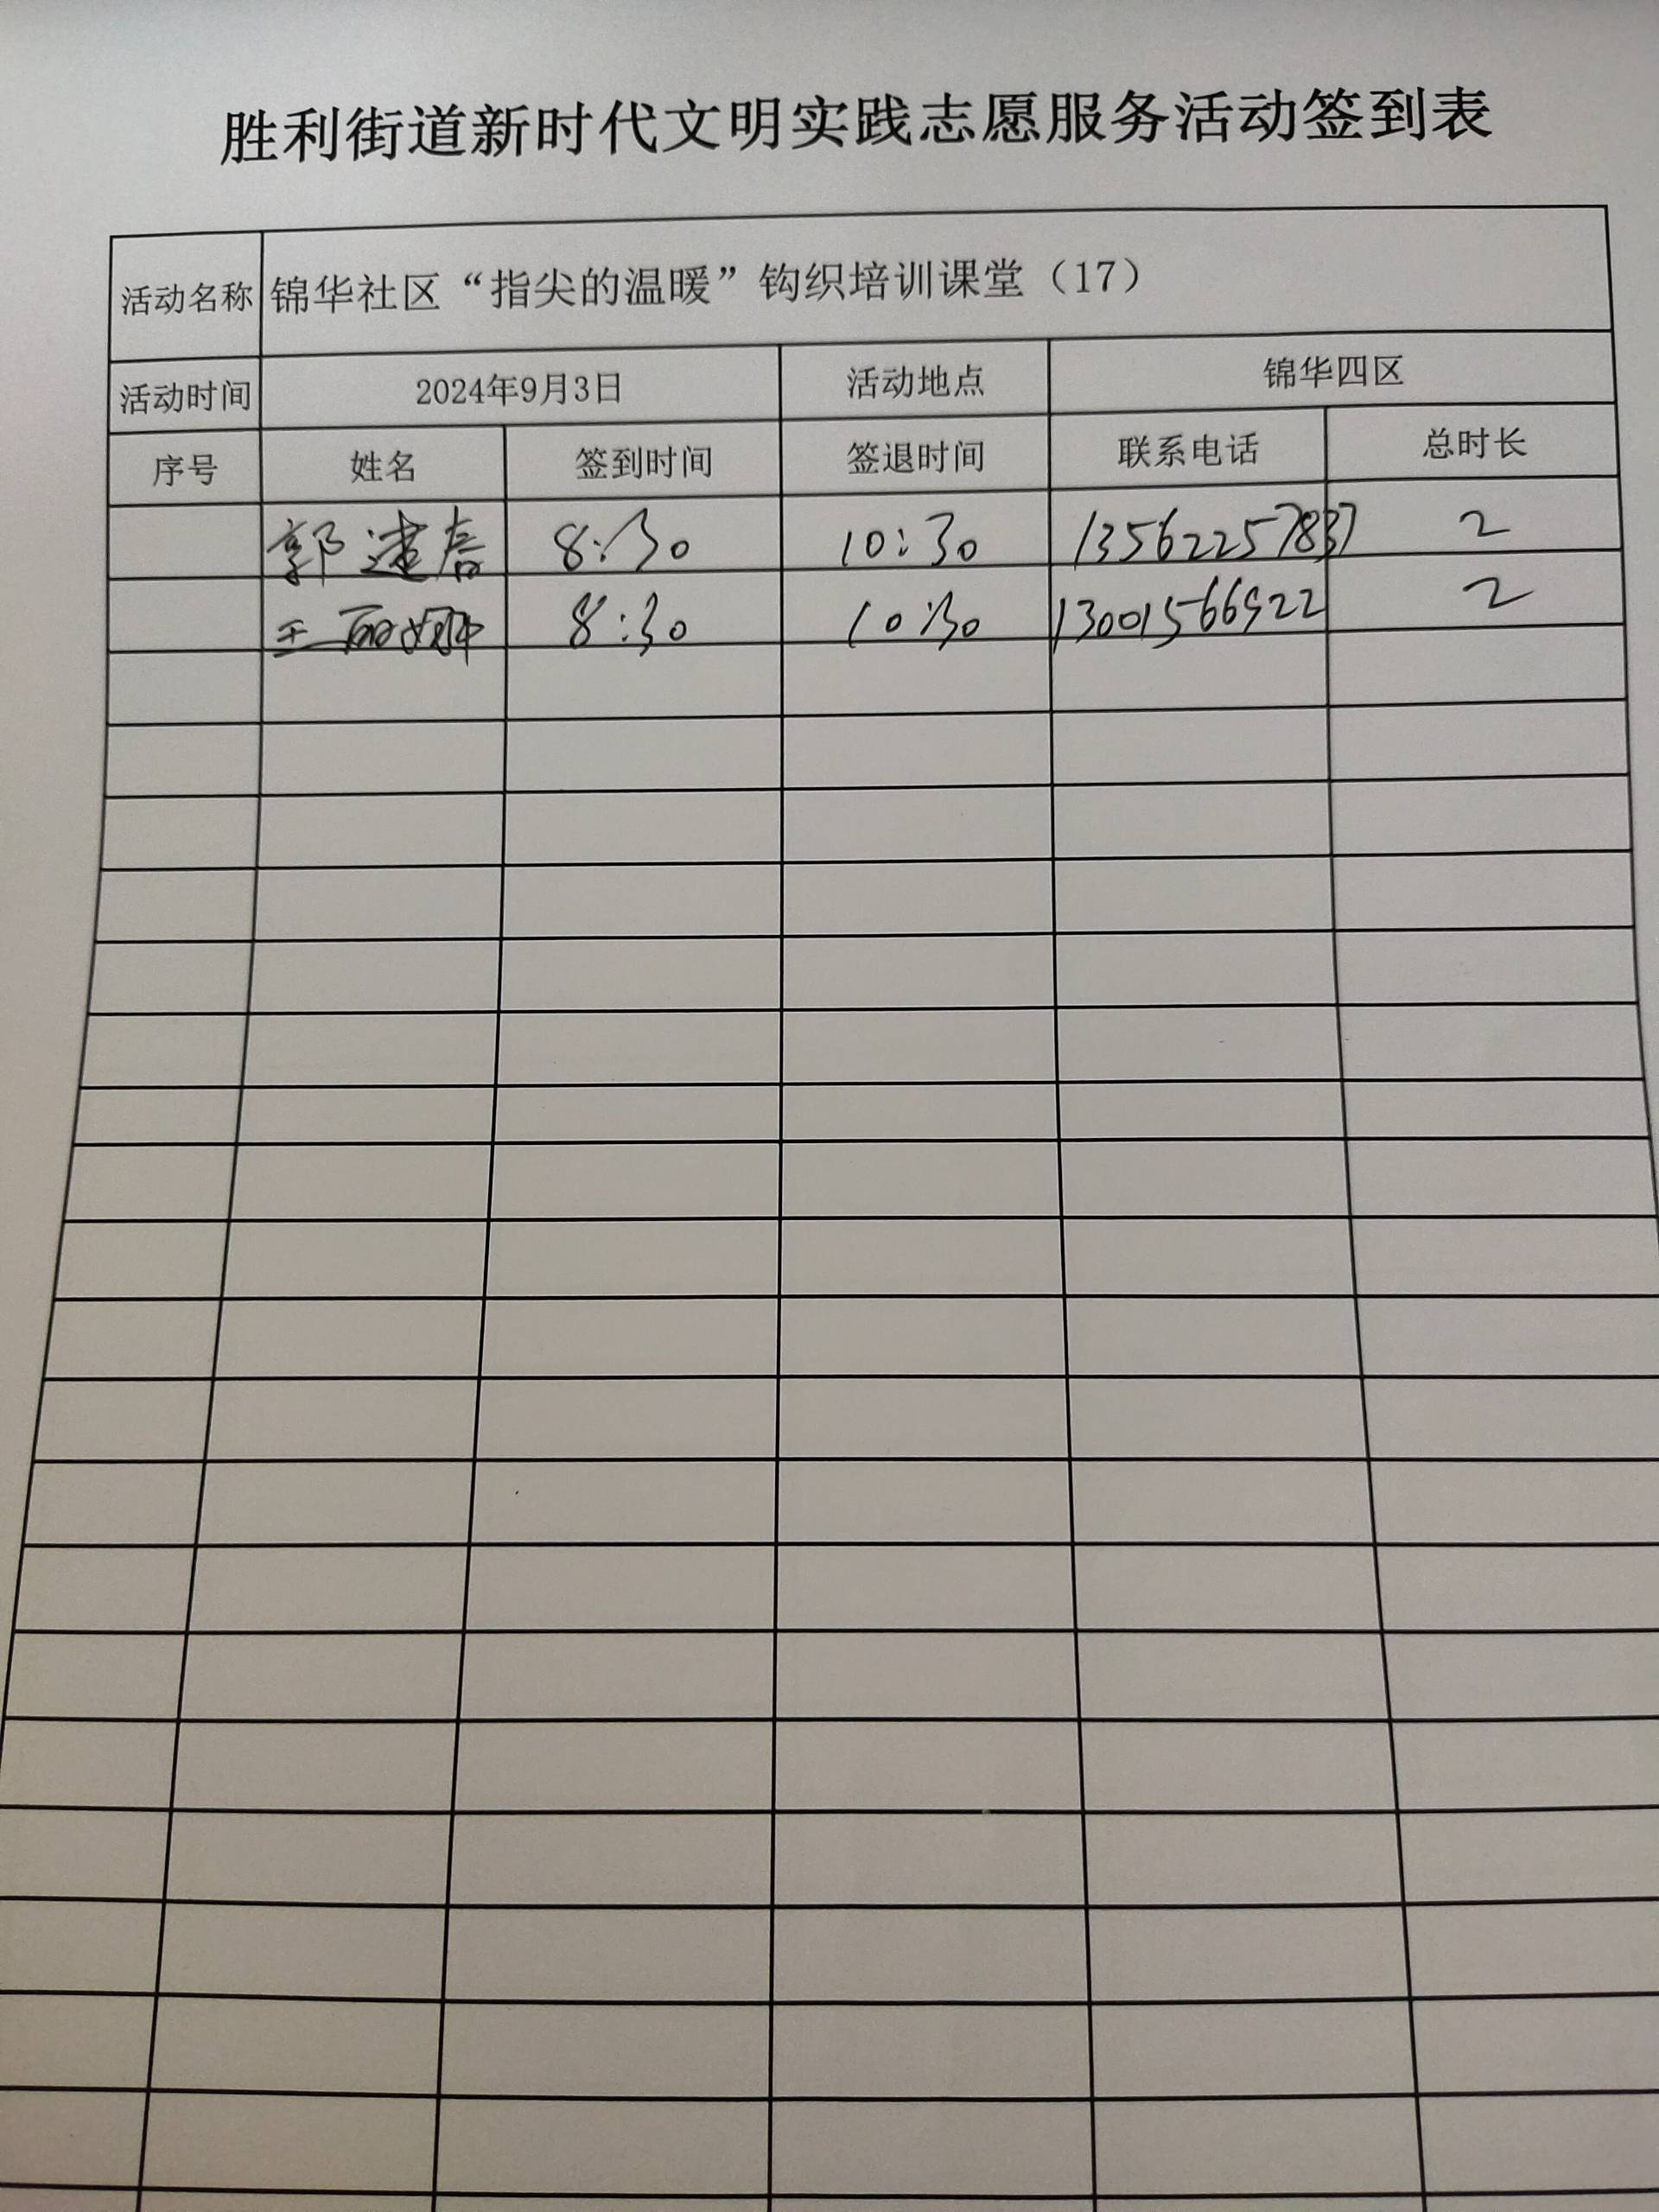 胜利街道新时代文明实践志愿服务活动签到表
活动名称 锦华社区“指尖的温暖”钩织培训课堂（17）
活动时间 2024年9月3日 活动地点 锦华四区
序号 姓名 签到时间 签退时间 联系电话 总时长
郭建春 8:30 10:30 13562257837 2
王丽娜 8:30 10:30 13001566922 2